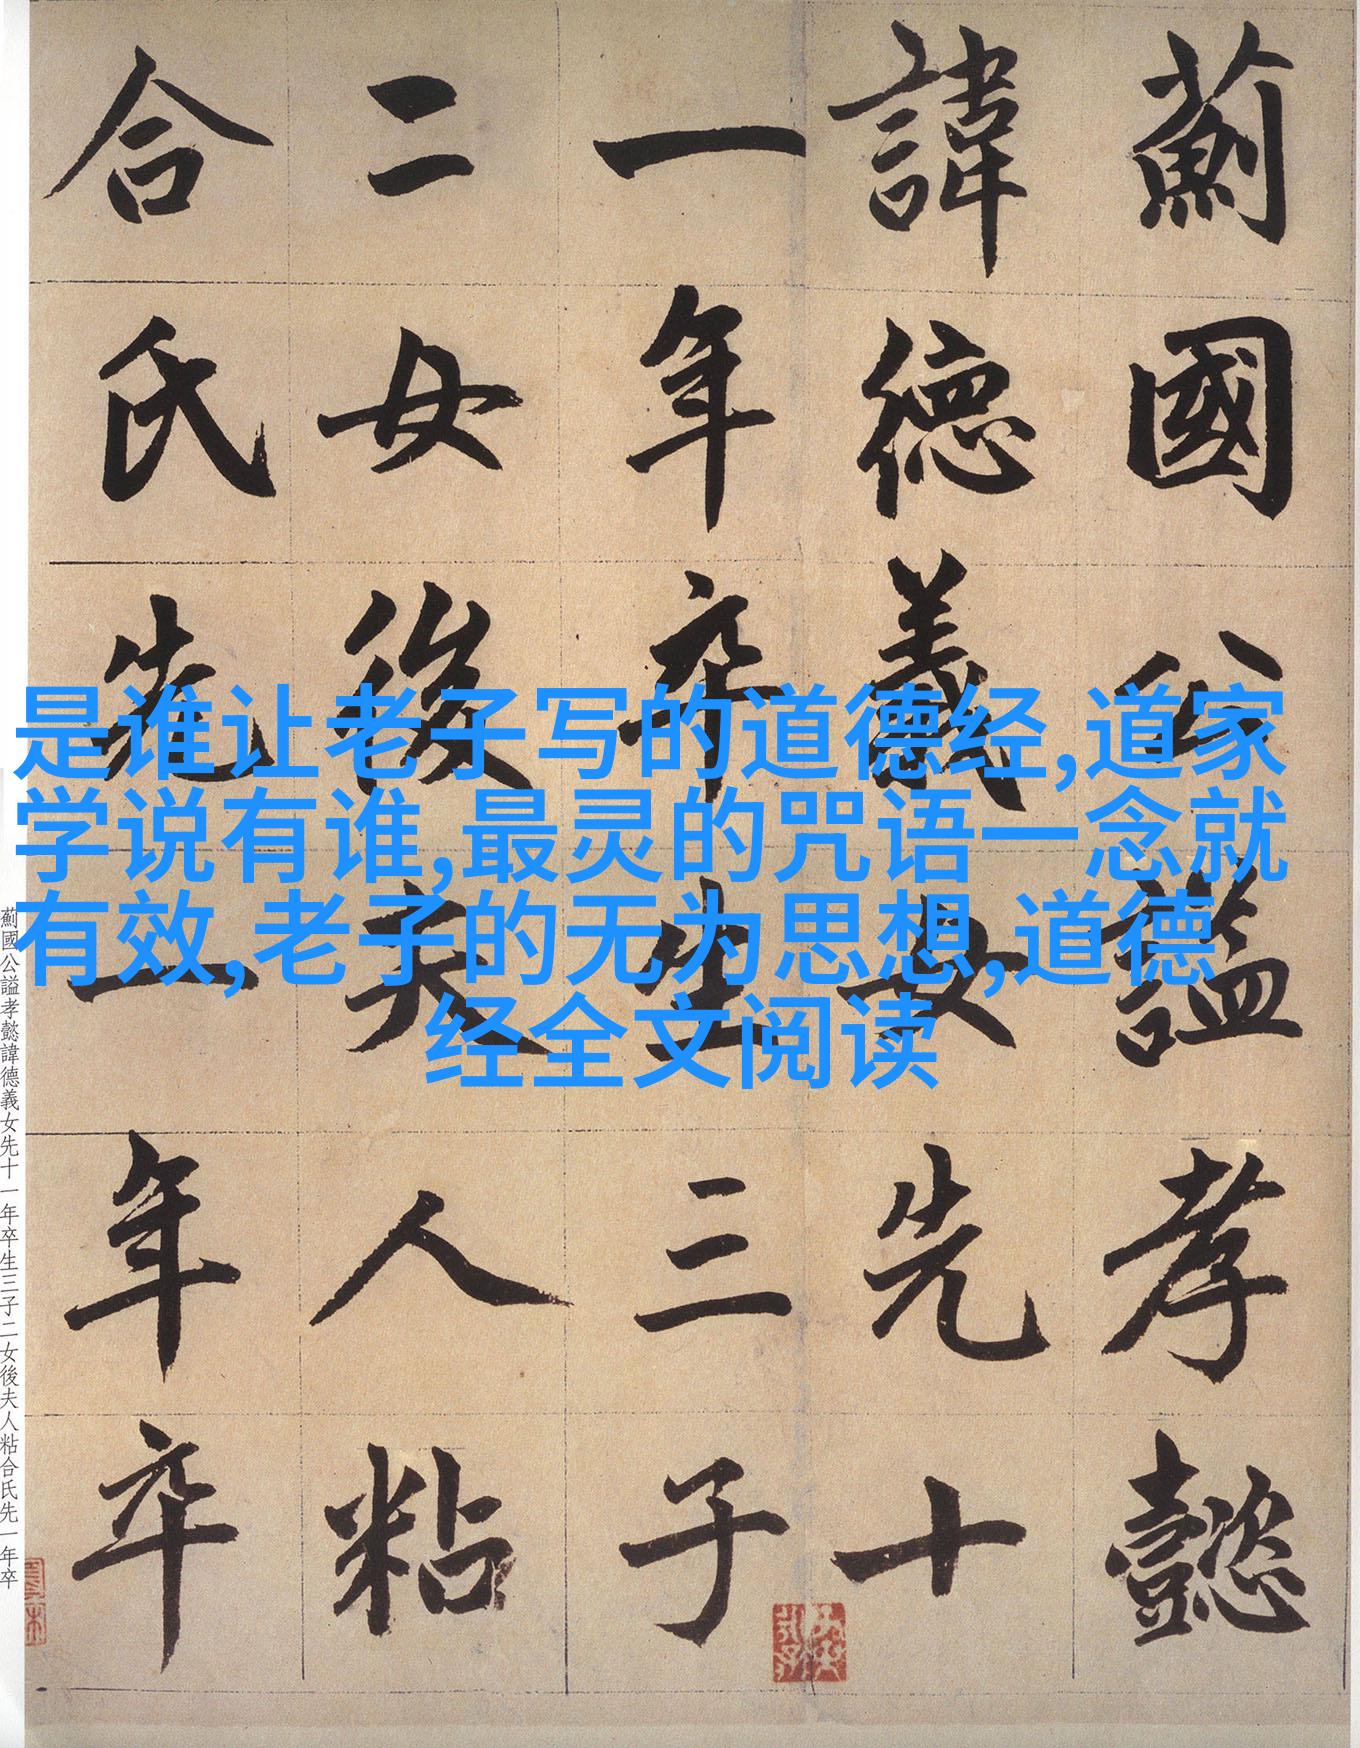 薊國公謚孝懿
諱德義女先十
一年卒生三子
二女後夫人粘
合氏先一年卒
是谁让老子写的道德经,道家
学说有谁,最灵的咒语一念就
有效,老子的无为思想,道德
经全文阅读
薊國公謚孝懿諱德義女先十一年卒生三子二女後夫人粘合氏先一年卒